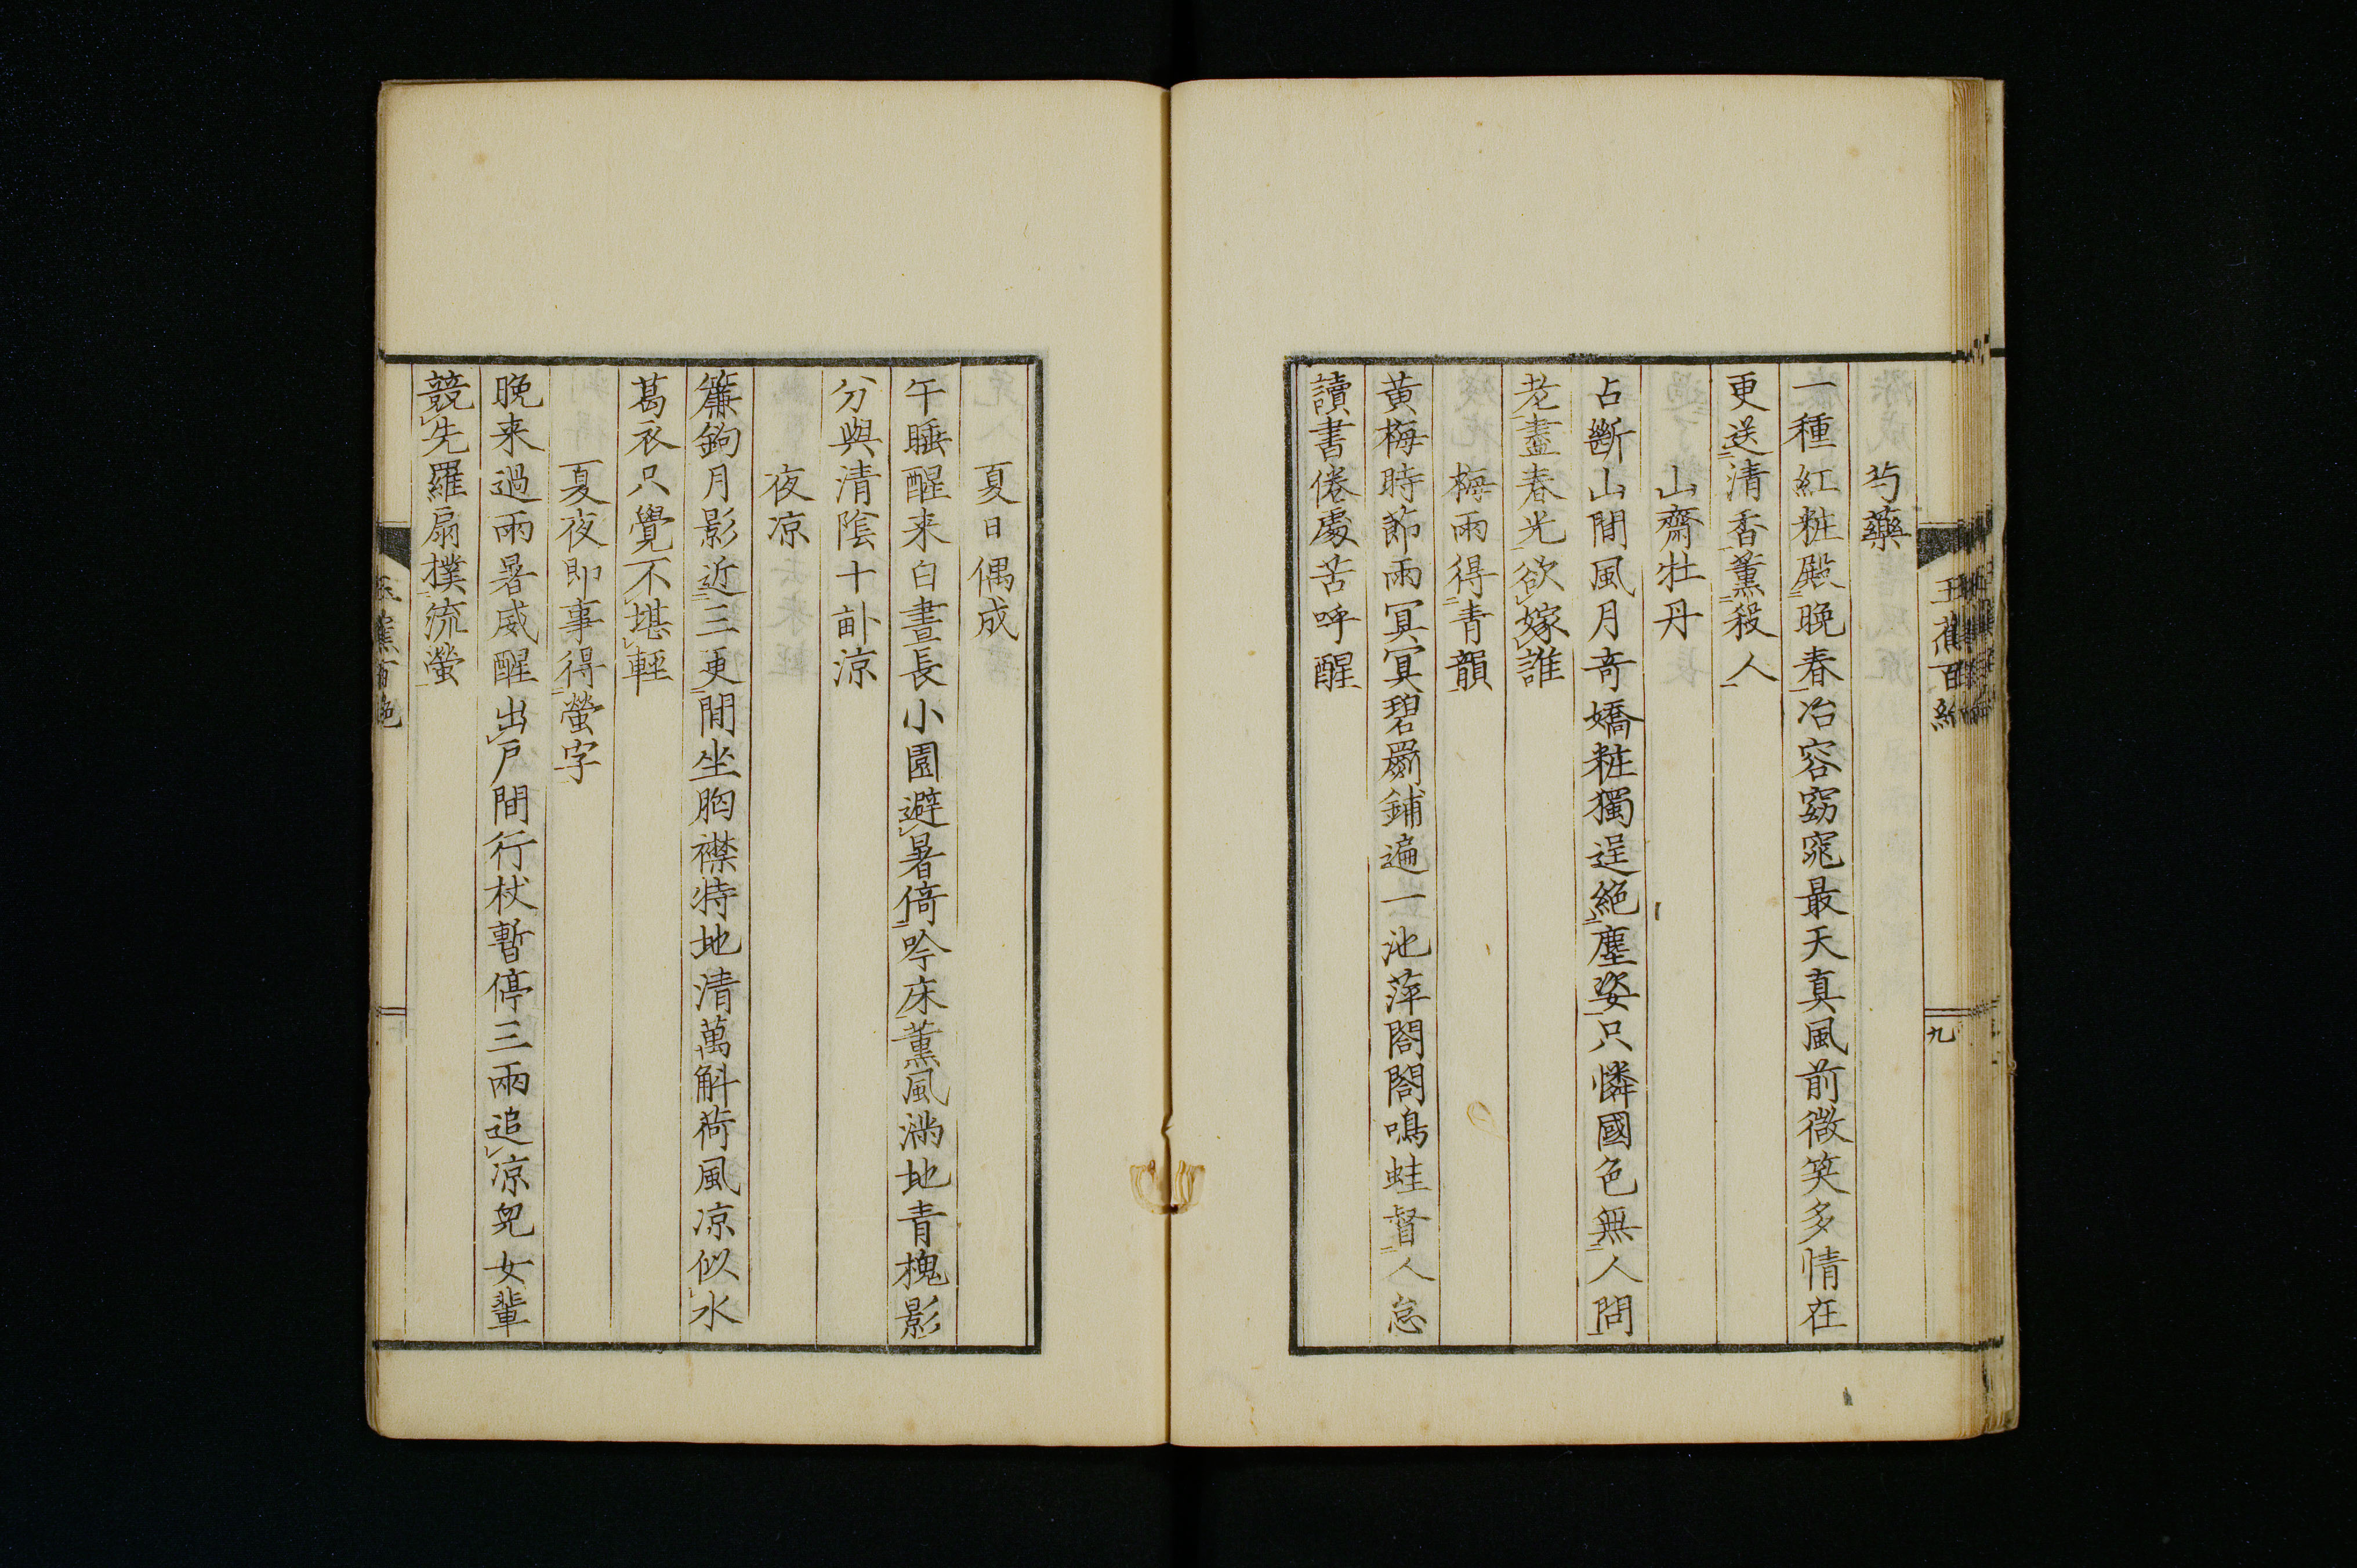 芍藥
一種紅粧殿晚春冶容窈窕最天真風前微笑多情在
更送清香薰殺人
山齋牡丹
占斷山間風月奇嬌粧獨逞絕塵姿只憐國色無人問
老盡春光欲嫁誰
梅雨得青韻
黃梅時節雨冥冥碧罽鋪遍一池萍閤閤鳴蛙督人怠
讀書倦處苦呼醒
九
夏日偶成
午睡醒来白晝長小園避暑倚吟床薰風滿地青槐影
分與清陰十畝涼
夜凉
簾鉤月影近三更閒坐胸襟特地清萬斛荷風凉似水
葛衣只覺不堪輕
夏夜即事得螢字
晚来過雨暑威醒出戶間行杖暫停三兩追凉兒女輩
競先羅扇撲流螢